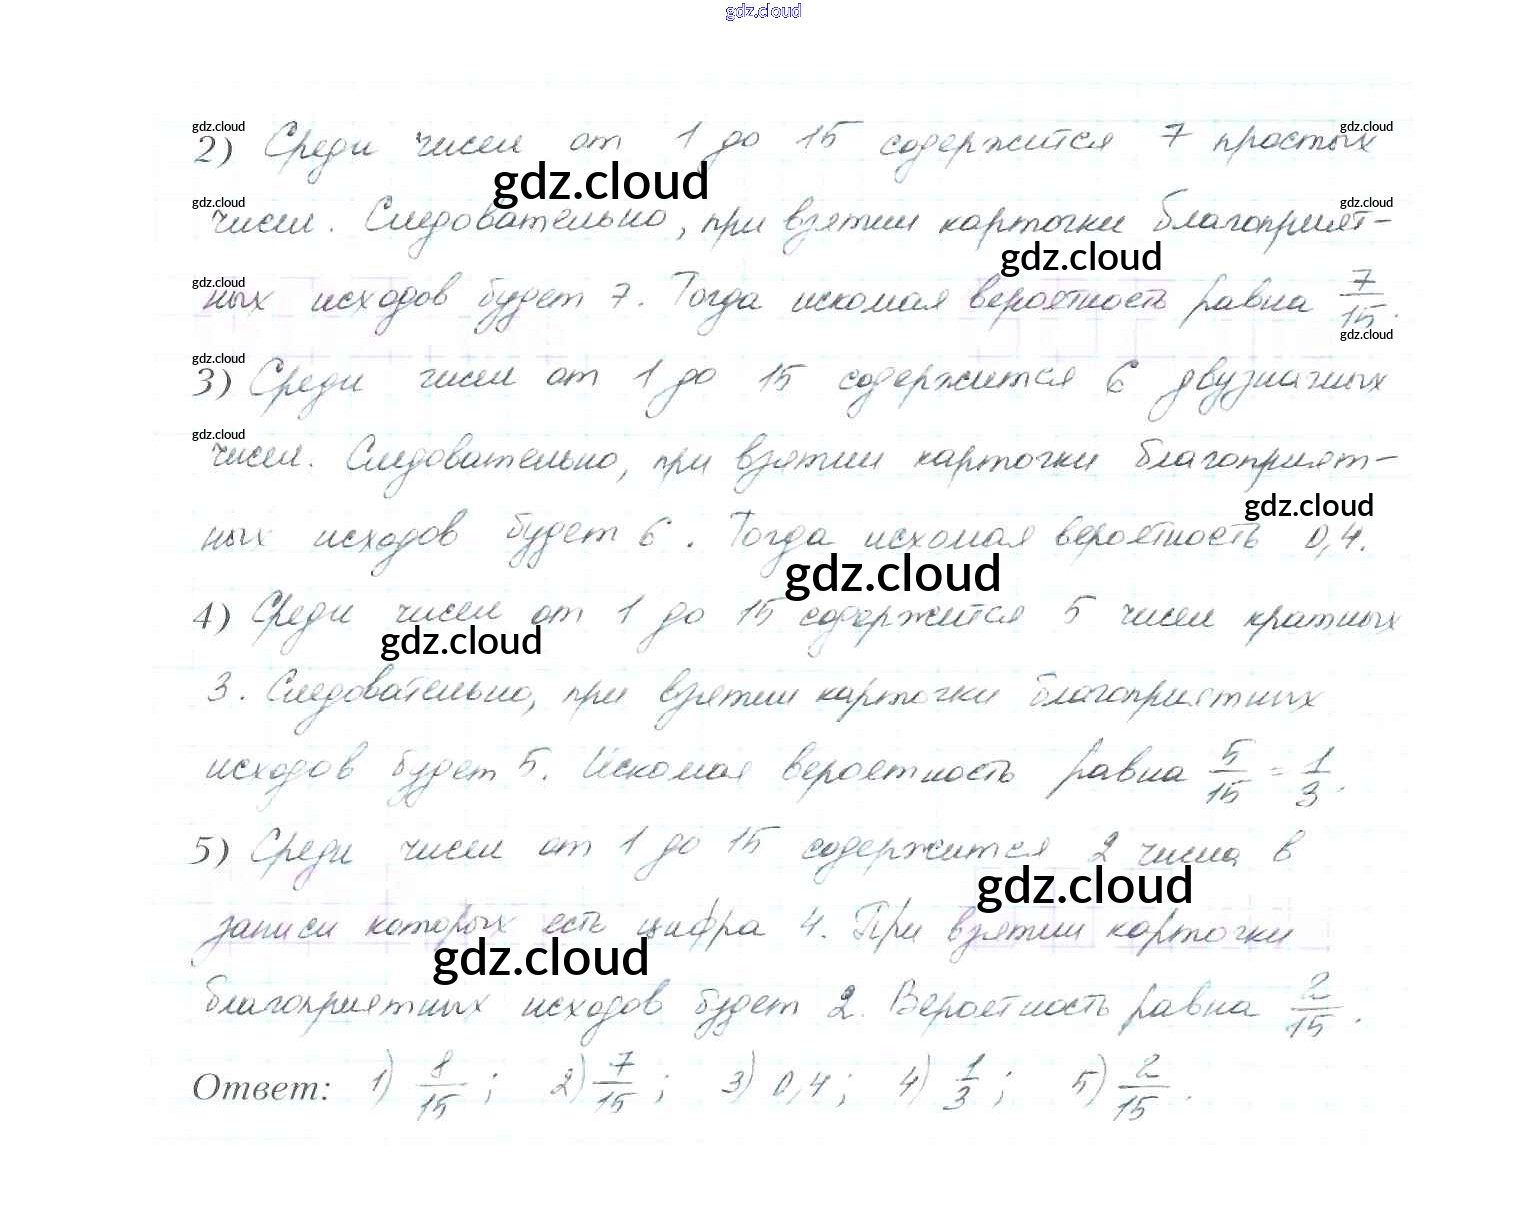 gdz.cloud
gdz.cloud gdz.cloud
2) Среди чисел от 1 до 15 содержится 7 простых
gdz.cloud
gdz.cloud gdz.cloud
чисел. Следовательно, при взятии карточки благоприят-
gdz.cloud
gdz.cloud
ных исходов будет 7. Тогда искомая вероятность равна 7/15.
gdz.cloud
gdz.cloud
3) Среди чисел от 1 до 15 содержится 6 двузначных
gdz.cloud
чисел. Следовательно, при взятии карточки благоприят-
gdz.cloud
ных исходов будет 6. Тогда искомая вероятность 0,4.
gdz.cloud
4) Среди чисел от 1 до 15 содержится 5 чисел кратных
gdz.cloud
3. Следовательно, при взятии карточки благоприятных
исходов будет 5. Искомая вероятность равна 5/15 = 1/3.
5) Среди чисел от 1 до 15 содержится 2 числа в
gdz.cloud
записи которых есть цифра 4. При взятии карточки
gdz.cloud
благоприятных исходов будет 2. Вероятность равна 2/15.
Ответ: 1) 8/15; 2) 7/15; 3) 0,4; 4) 1/3; 5) 2/15.